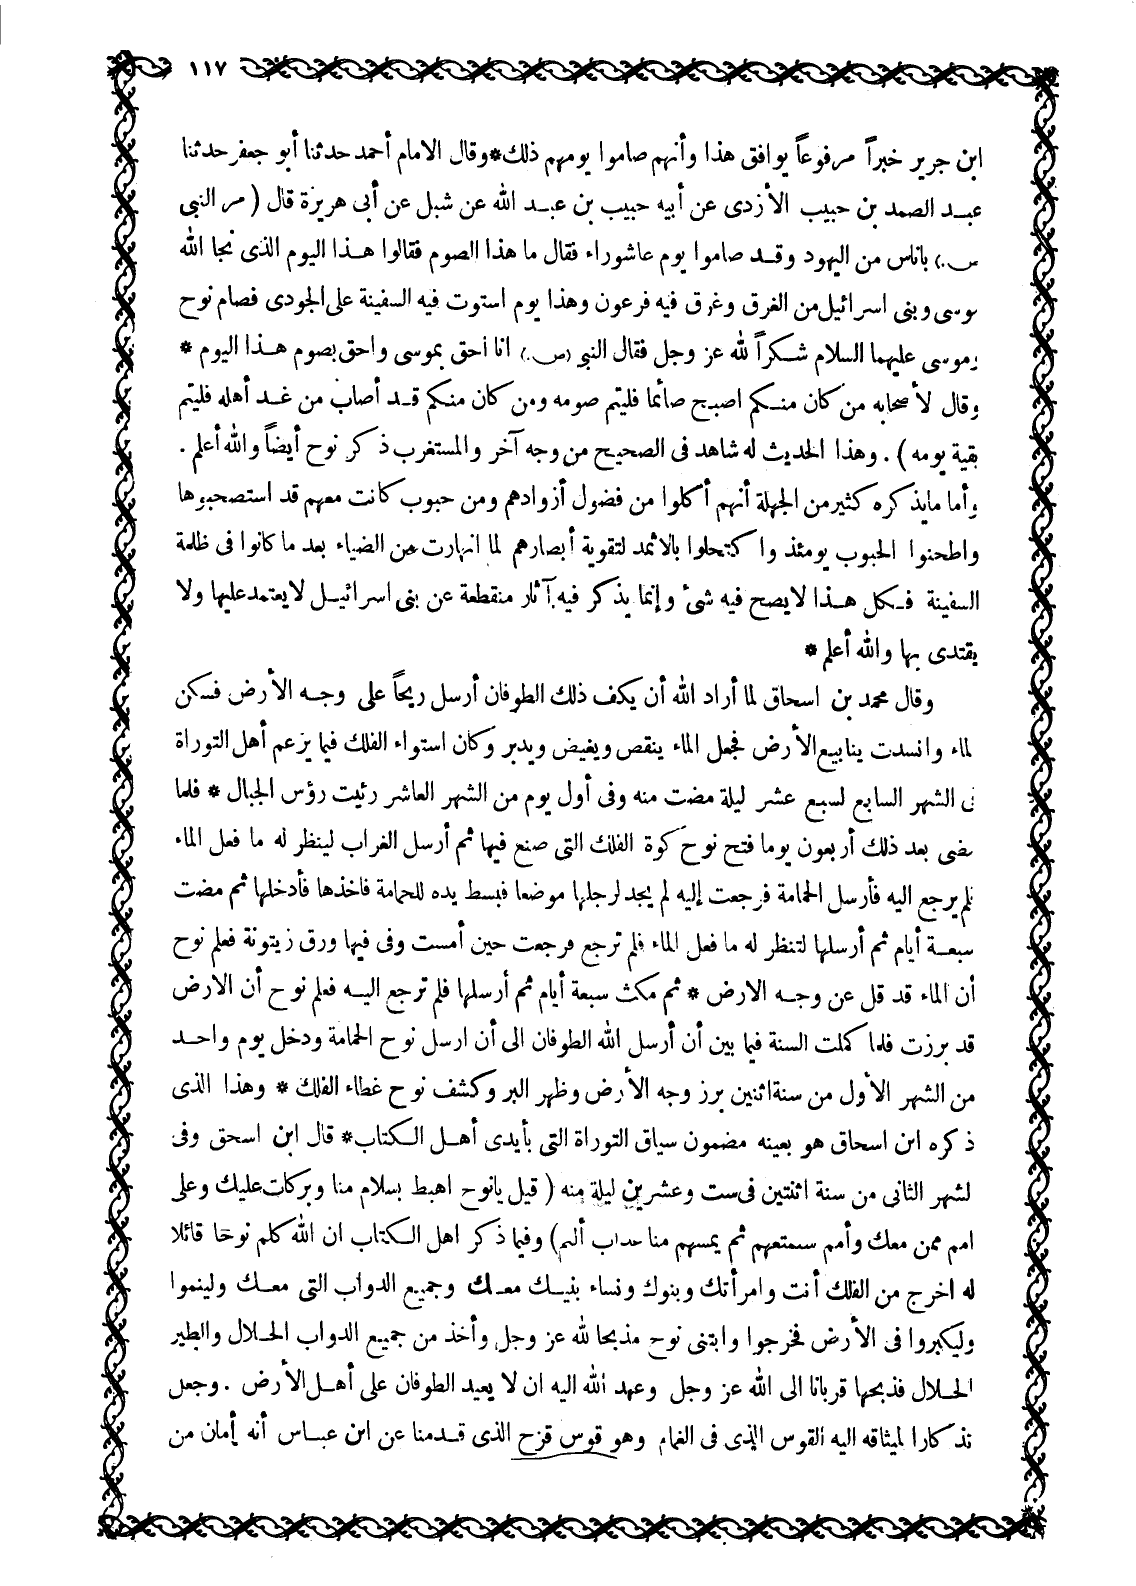 ١١٧
ابن جرير خبراً مرفوعاً يوافق هذا وأنهم صاموا يومهم ذلك*وقال الامام أحمد حدثنا أبو جعفر حدثنا
عبد الصمد بن حبيب الأزدى عن أبيه حبيب بن عبد الله عن شبل عن أبى هريرة قال ( مر النبى
(ص.) باناس من اليهود وقد صاموا يوم عاشوراء فقال ما هذا الصوم فقالوا هذا اليوم الذى نجا الله
موسى وبنى اسرائيل من الغرق وغرق فيه فرعون وهذا يوم استوت فيه السفينة على الجودى فصام نوح
وموسى عليهما السلام شكراً لله عز وجل فقال النبي (ص.) انا احق بموسى واحق بصوم هذا اليوم *
وقال لأصحابه من كان منكم اصبح صائما فليتم صومه ومن كان منكم قد أصاب من غد أهله فليتم
بقية يومه ) . وهذا الحديث له شاهد فى الصحيح من وجه آخر والمستغرب ذكر نوح أيضاً والله أعلم .
وأما مايذكره كثير من الجهلة أنهم أكلوا من فضول أزوادهم ومن حبوب كانت معهم قد استصحبوها
واطحنوا الحبوب يومئذ واكتحلوا بالاثمد لتقوية أبصارهم لما انهارت من الضياء بعد ما كانوا فى ظلمة
السفينة فكل هذا لايصح فيه شئ وإنما يذكر فيه آثار منقطعة عن بنى اسرائيل لايعتمد عليها ولا
يقتدى بها والله أعلم *
وقال محمد بن اسحاق لما أراد الله أن يكف ذلك الطوفان أرسل ريحاً على وجه الأرض فسكن
لماء وانسدت ينابيع الأرض فجعل الماء ينقص ويغيض ويدبر وكان استواء الفلك فيما يزعم أهل التوراة
فى الشهر السابع لسبع عشر ليلة مضت منه وفى أول يوم من الشهر العاشر رئيت رؤس الجبال * فلما
مضى بعد ذلك أربعون يوما فتح نوح كوة الفلك التى صنع فيها ثم أرسل الغراب لينظر له ما فعل الماء
فلم يرجع اليه فأرسل الحمامة فرجعت إليه لم يجد لرجلها موضعا فبسط يده للحمامة فاخذها فأدخلها ثم مضت
سبعة أيام ثم أرسلها لتنظر له ما فعل الماء فلم ترجع فرجعت حين أمست وفى فيها ورق زيتونة فعلم نوح
أن الماء قد قل عن وجه الارض * ثم مكث سبعة أيام ثم أرسلها فلم ترجع اليه فعلم نوح أن الارض
قد برزت فلما كملت السنة فيما بين أن أرسل الله الطوفان الى أن ارسل نوح الحمامة ودخل يوم واحد
من الشهر الأول من سنة اثنين برز وجه الأرض وظهر البر وكشف نوح غطاء الفلك * وهذا الذى
ذكره ابن اسحاق هو بعينه مضمون سياق التوراة التى بأيدى أهل الكتاب* قال ابن اسحق وفى
لشهر الثانى من سنة اثنتين فى ست وعشرين ليلة منه ( قيل يانوح اهبط بسلام منا وبركات عليك وعلى
امم ممن معك وأمم سنمتعهم ثم يمسهم منا عذاب أليم ) وفيما ذكر اهل الكتاب ان الله كلم نوحا قائلا
له اخرج من الفلك أنت وامرأتك وبنوك ونساء بنيك معك وجميع الدواب التى معك ولينموا
وليكبروا فى الأرض فخرجوا وابتنى نوح مذبحا لله عز وجل وأخذ من جميع الدواب الحلال والطير
الحلال فذبحها قربانا الى الله عز وجل وعهد الله اليه ان لا يعيد الطوفان على أهل الأرض . وجعل
تذكارا لميثاقه اليه القوس الذى فى الغمام وهو قوس قزح الذى قدمنا عن ابن عباس أنه إمان من